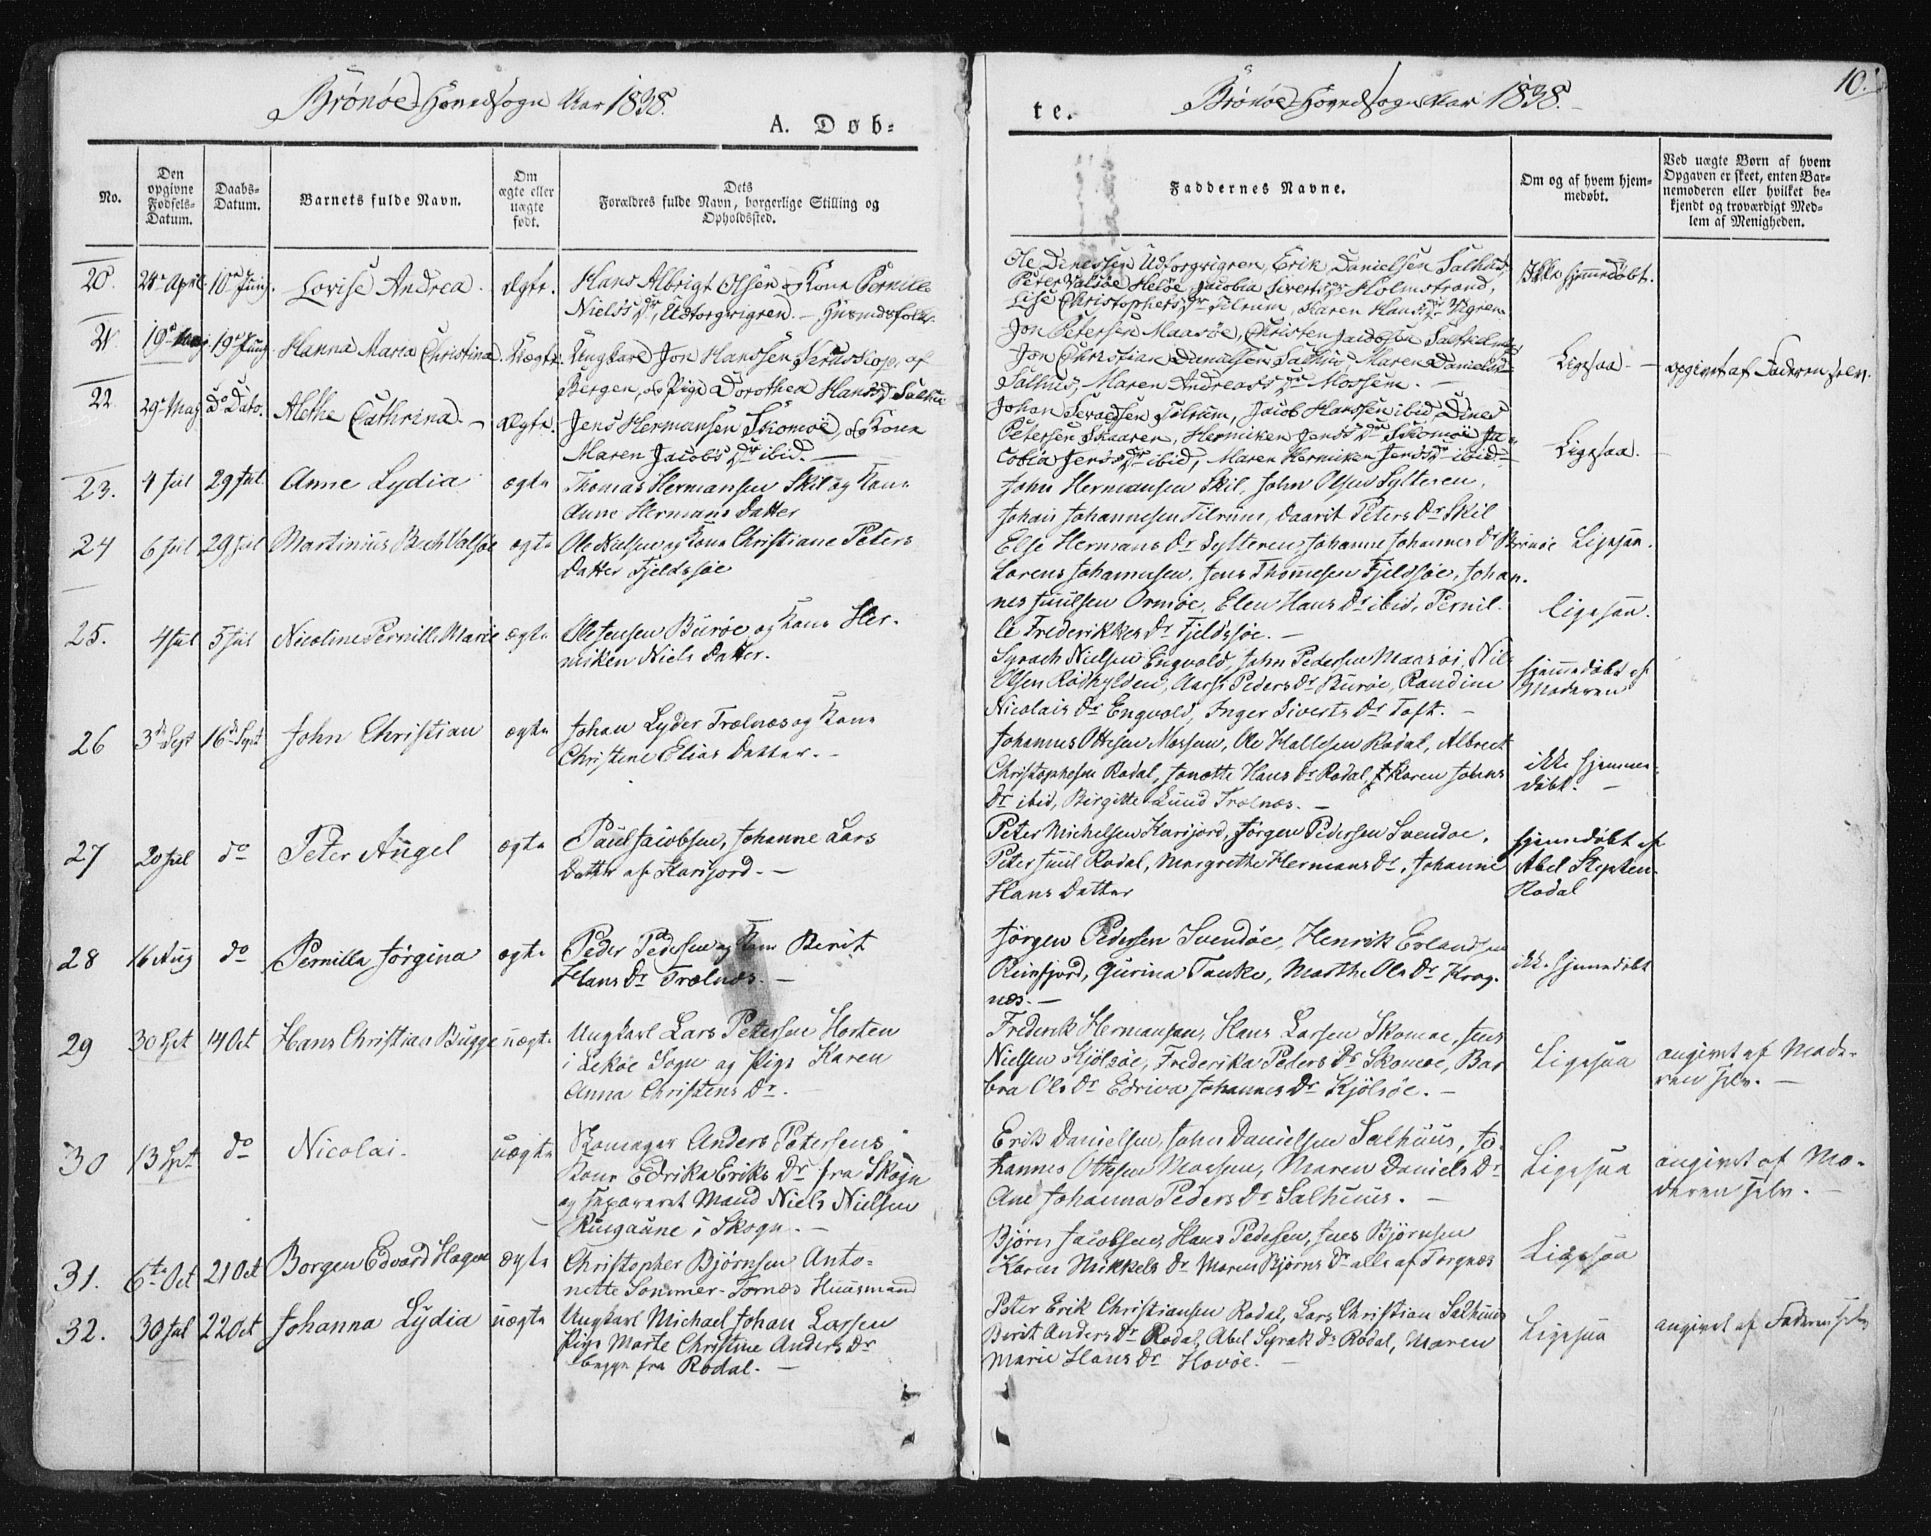 Brönöe Hovedsogn Aar 1838.
A. Døb-
No.
Den opgivne Fødsels-Datum.
Daabs-Datum.
Barnets fulde Navn.
Om ægte eller uægte født.
Dets Forældres fulde Navn, borgerlige Stilling og Opholdssted.
20. 24de April. 10de Juny. Lovise Andrea. Ægte. Hans Albrigt Olsen og Kone Pernille
Niels Dr, Udtorgvigren. - Huusmdsfolk.
21. 19de May 19de Juny Hanna Maria Christina. Uægte. Ungkarl Jon Hanssen, af
Bergen, og Pige Dorothea Hans Dr Salhus
22. 29de May Do Dato. Alethe Cathrina. - Ægte. Jens Hermansen Skomoe, og Kone
Maren Jacobs Dr ibid. -
23. 4 Jul 29 Jul. Anne Lydia ægte Thomas Hermansen Skil og Kone
Anne Hermans Datter
24 6 Jul 29 Jul Martinius Bech Valsøe ægte Ole Nielsen og Kone Christiane Peters
Datter Fjeldsøe
25. 4 Jul 5 Jul Nicoline Pernille Marie ægte Ole Jensen Burøe og Kone Her-
miken Niels Datter.
26 3de Sept 16de Sept John Christian ægte Johan Lyder Trælnæs og Kone
Christine Elias Datter. -
27 20 Jul do Peter Angel ægte Paul Jacobsen, Johanne Lars
Datter af Harifjord. -
28 16 Aug do Pernilla Jørgina ægte Peder Pedersen og Kone Berit
Hans Dr Trælnæs. -
29 30 Sept 14 Oct Hans Christian Bugge uægte Ungkarl Lars Petersen Horten
i Lekøe Sogn og Pige Karen
Anna Christens Dr. -
30 13 Sept do Nicolai. uægte Skomager Anders Petersens
Kone Edrika Eriks Dr fra Skogn
og separeret Mand Niels Nielsen
Ringaune i Skogn. -
31. 6te Oct 21 Oct Borgen Edvard Hagen ægte Christopher Bjørnsen Anto-
nette Sommer Tornæs Huusmand
32. 30 Jul 22 Oct Johanna Lydia uægte Ungkarl Michael Johan Larsen
Pige Marte Christine Anders Dr
begge fra Rodal. -
te.
Brönöe Hovedsogn Aar 1838.
10.
Faddernes Navne.
Om og af hvem hjemmedøbt.
Ved uægte Børn af hvem Opgaven er skeet, enten Barnemoderen eller hvilket bekjendt og troværdigt Medlem af Menigheden.
Ole Denessen Udtorgvigren, Erik Danielsen Salhus, Ikke hjemmedøbt.
Peter Valsøe Heløe, Jacobia Siverts Dr Holmstrand,
Lise Christophers Dr Tilrum, Karen Hans Dr Vigren
Jon Petersen Maasøe, Christen Jacobsen
Jon Christian Danielsen Salhus, Maren Daniels Dr Ligesaa. - opgivet af Faderen selv.
Salhus, Maren Andreas Dr Mossem. -
Johan Tilrum, Jacob Hanssen ibid, Dines
Petersen Skaaren, Hermiken Jens Dr Skomoe Ja- Ligesaa.
cobia Jens Dr ibid, Maren Hermiken Jens Dr ibid -
John Hermansen Skil, John Olsen Sylteren,
Johan Johannesen Tilrum, Daarit Peters Dr Skil
Else Hermans Dr Sylteren, Johanne Johannes Dr Brönöe Ligesaa.
Lorens Johannesen, Jens Thomesen Fjeldsøe, Johan-
nes Juulsen Ormøe, Elen Hans Dr ibid, Pernil- Ligesaa.
le Frederikkes Dr Fjeldsøe. -
Syrach Nielsen Engvold, John Pedersen Maasøi, Nils hjemmedøbt af
Olsen Rødhylden, Peders Dr Burøe, Randine Moderen
Nicolais Dr Engvold, Inger Siverts Dr Toft. -
Johannes Ottesen Mossem, Ole Hallesen Rodal, Albrect
Christophersen Rodal, Janette Hans Dr Rodal, Karen Johns ikke hjemme-
Dr ibid, Birgitte Lund Trælnæs. - døbt. -
Peter Michelsen Harifjord, Jørgen Pedersen Svendøe, hjemmedøbt af
Peter Juul Rodal, Margrethe Hermans Dr, Johanne Abel Stepfen
Hans Datter Rodal
Jørgen Pedersen Svendøe, Henrik Erlandsen
Reinfjord, Gurina Tanke, Marthe Ols Dr Krog- ikke hjemmedøbt
næs. -
Frederik Hermansen, Hans Larsen Skomoe, Jens
Nielsen Kjölsöe, Frederika Peders Dr Skomoe, Bar- Ligesaa angivet af Mode-
bra Ols Dr Edriva Johannes Dr Kjölsöe. - ren selv. -
Erik Danielsen, John Danielsen Salhuus, Jo-
hannes Ottesen Mossem, Maren Daniels Dr Ligesaa angivet af Mo-
Ane Johanna Peders Dr Salhuus. - deren selv. -
Bjørn Jacobsen, Hans Pedersen, Jens Bjørnsen
Karen Mikkels Dr Maren Bjørns Dr alle af Torgnæs Ligesaa
Peter Erik Christiansen Rodal, Lars Christian Salhuus
Berit Anders Dr Rodal, Abel Syrak Dr Rodal, Maren Ligesaa angivet af Faderen selv
Marie Hans Dr Hovøe. -